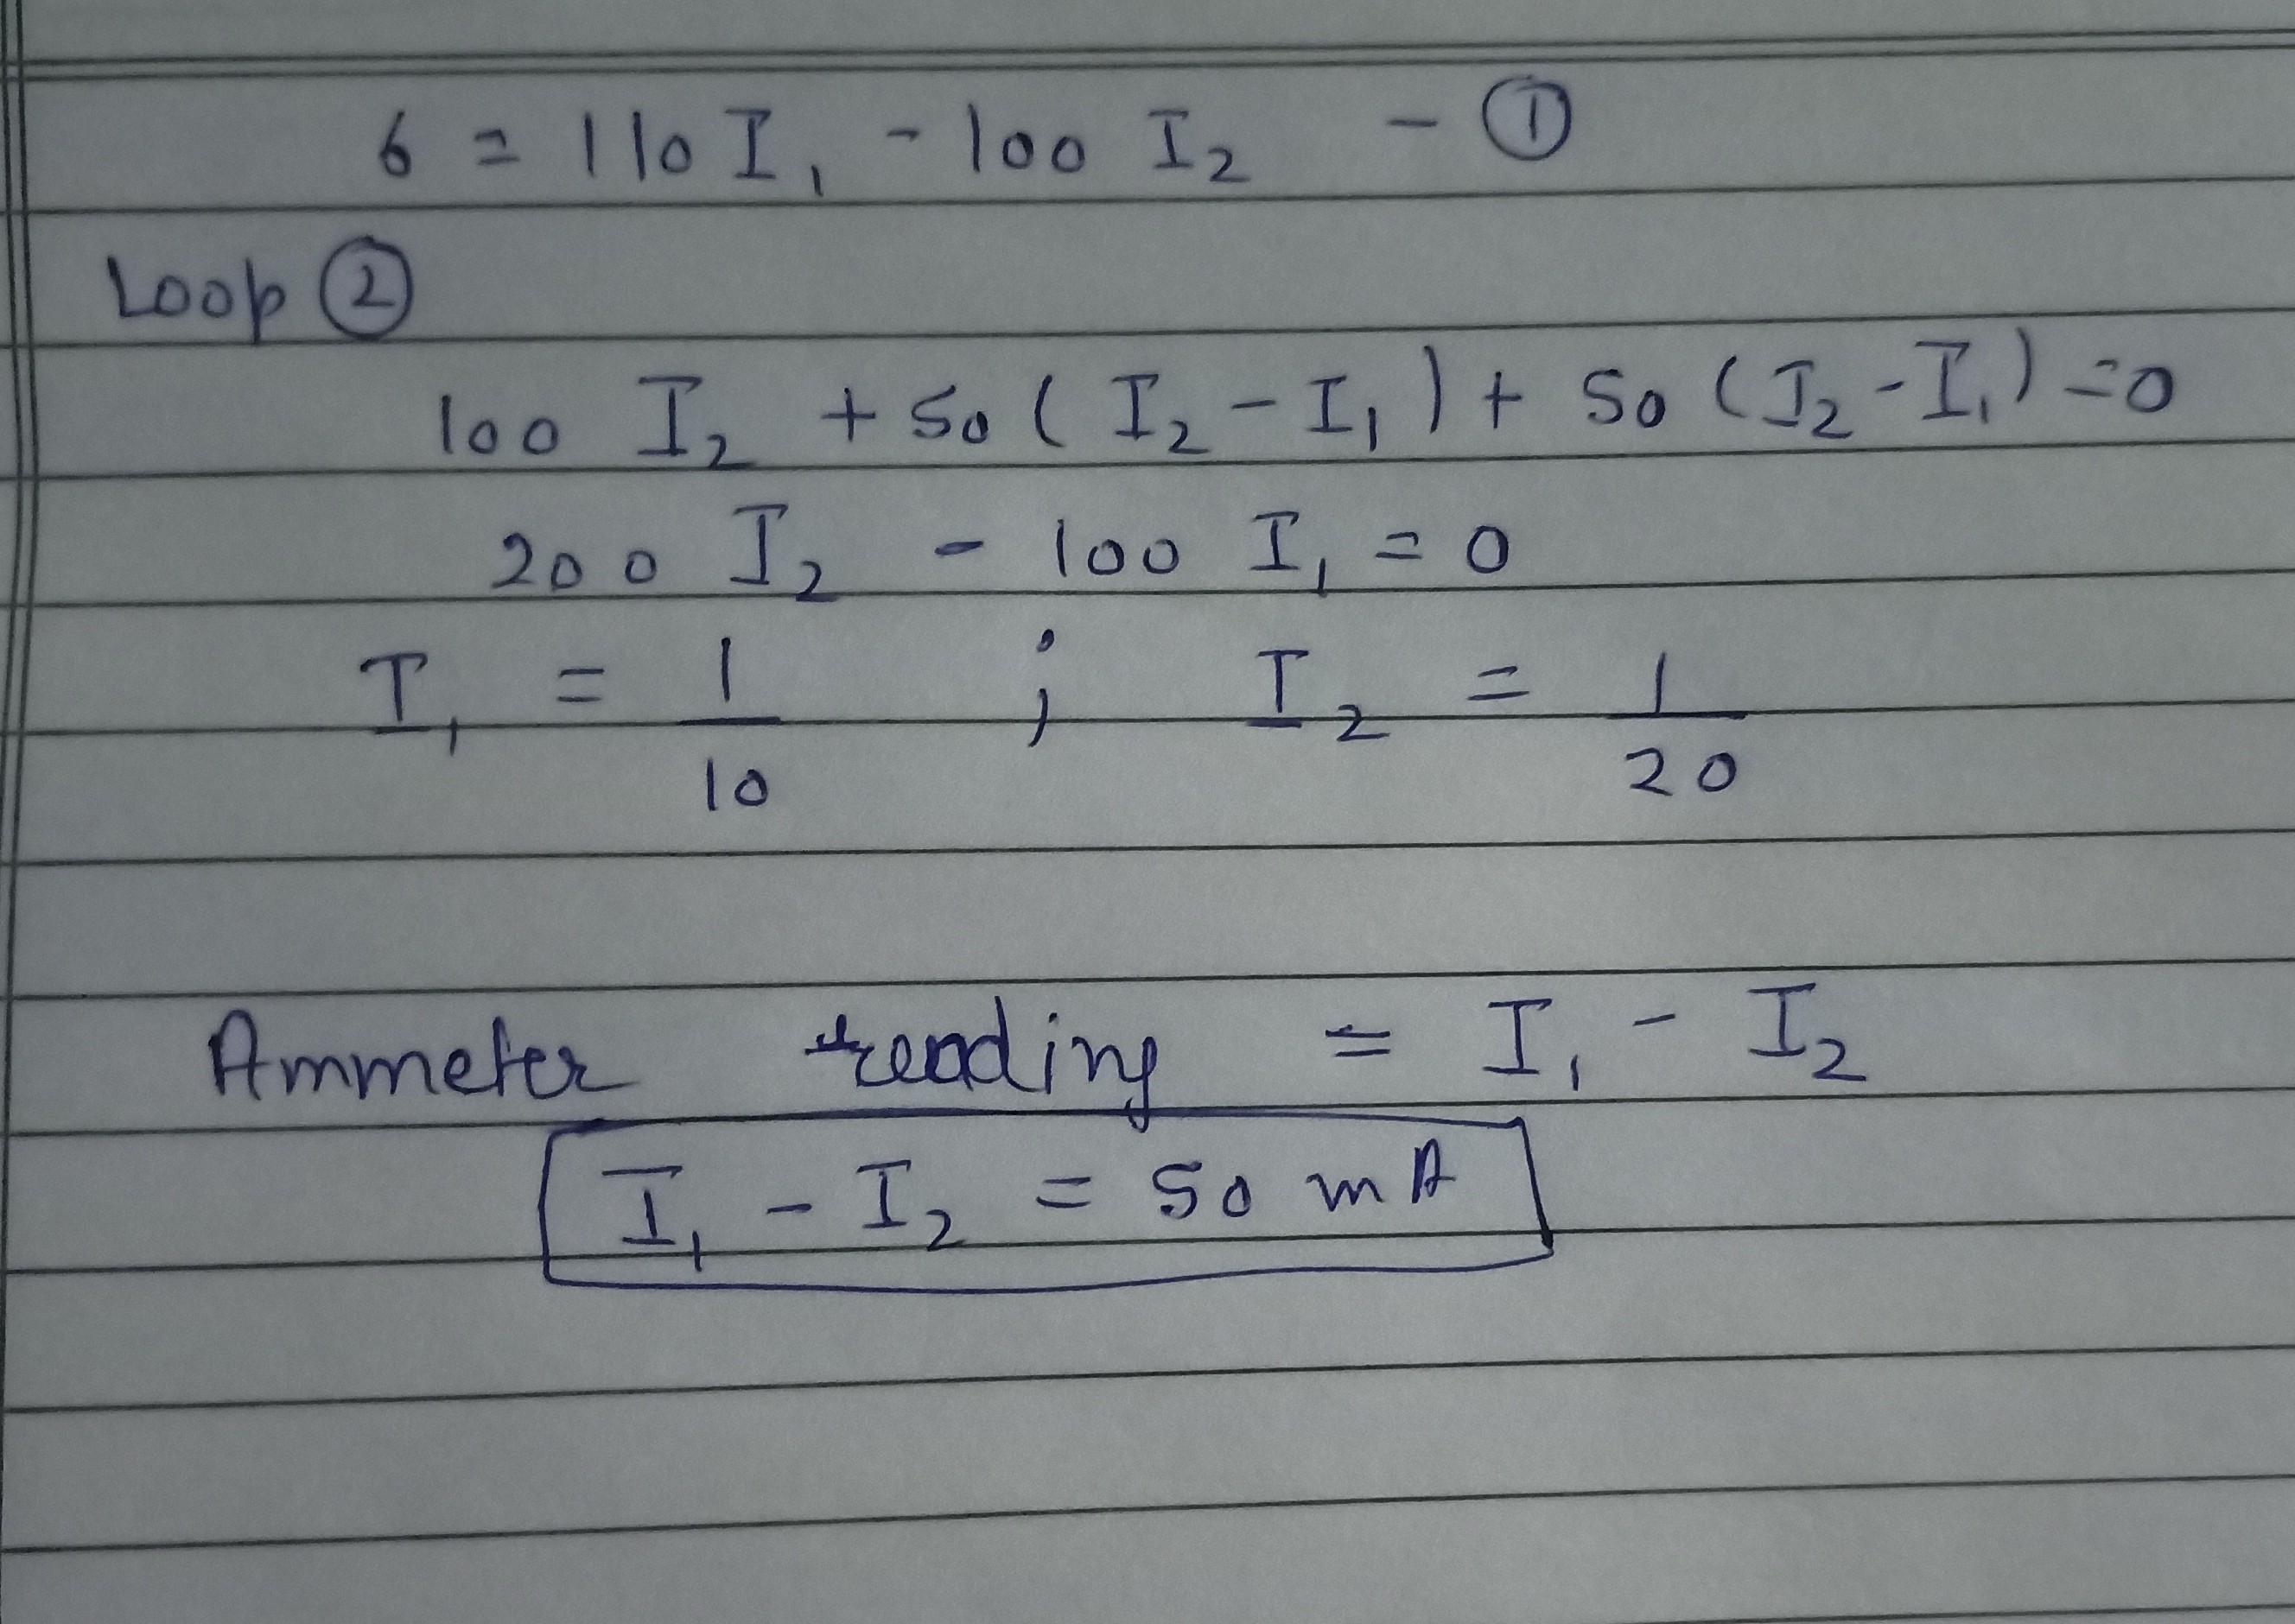 6 = 110 I₁ - 100 I₂ - ①
Loop ②
100 I₂ + 50 ( I₂ - I₁ ) + 50 ( I₂ - I₁ ) = 0
200 I₂ - 100 I₁ = 0
I₁ = 1/10 ; I₂ = 1/20
Ammeter reading = I₁ - I₂
I₁ - I₂ = 50 mA